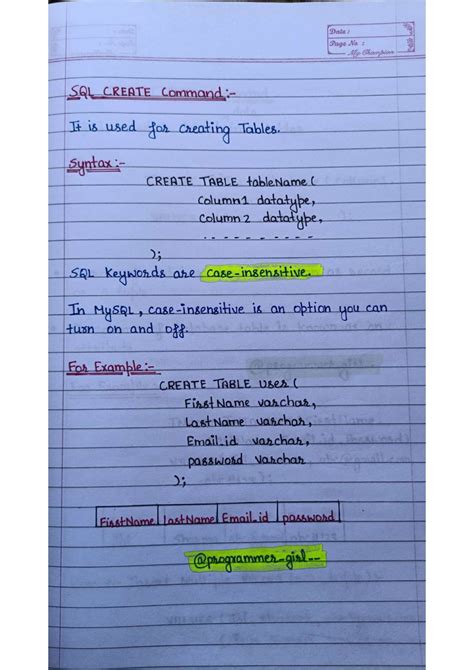 Date :
Page No :
My Champion
SQL CREATE Command:-
It is used for creating Tables.
Syntax:-
CREATE TABLE tableName (
Column1 datatype,
Column 2 datatype,
- - - - - - - -
);
SQL Keywords are case-insensitive.
In MySQL, case-insensitive is an option you can
turn on and off.
For Example:-
CREATE TABLE user (
FirstName varchar,
LastName varchar,
Email_id varchar,
password varchar
);
FirstName lastName Email_id password
@programmer_girl__